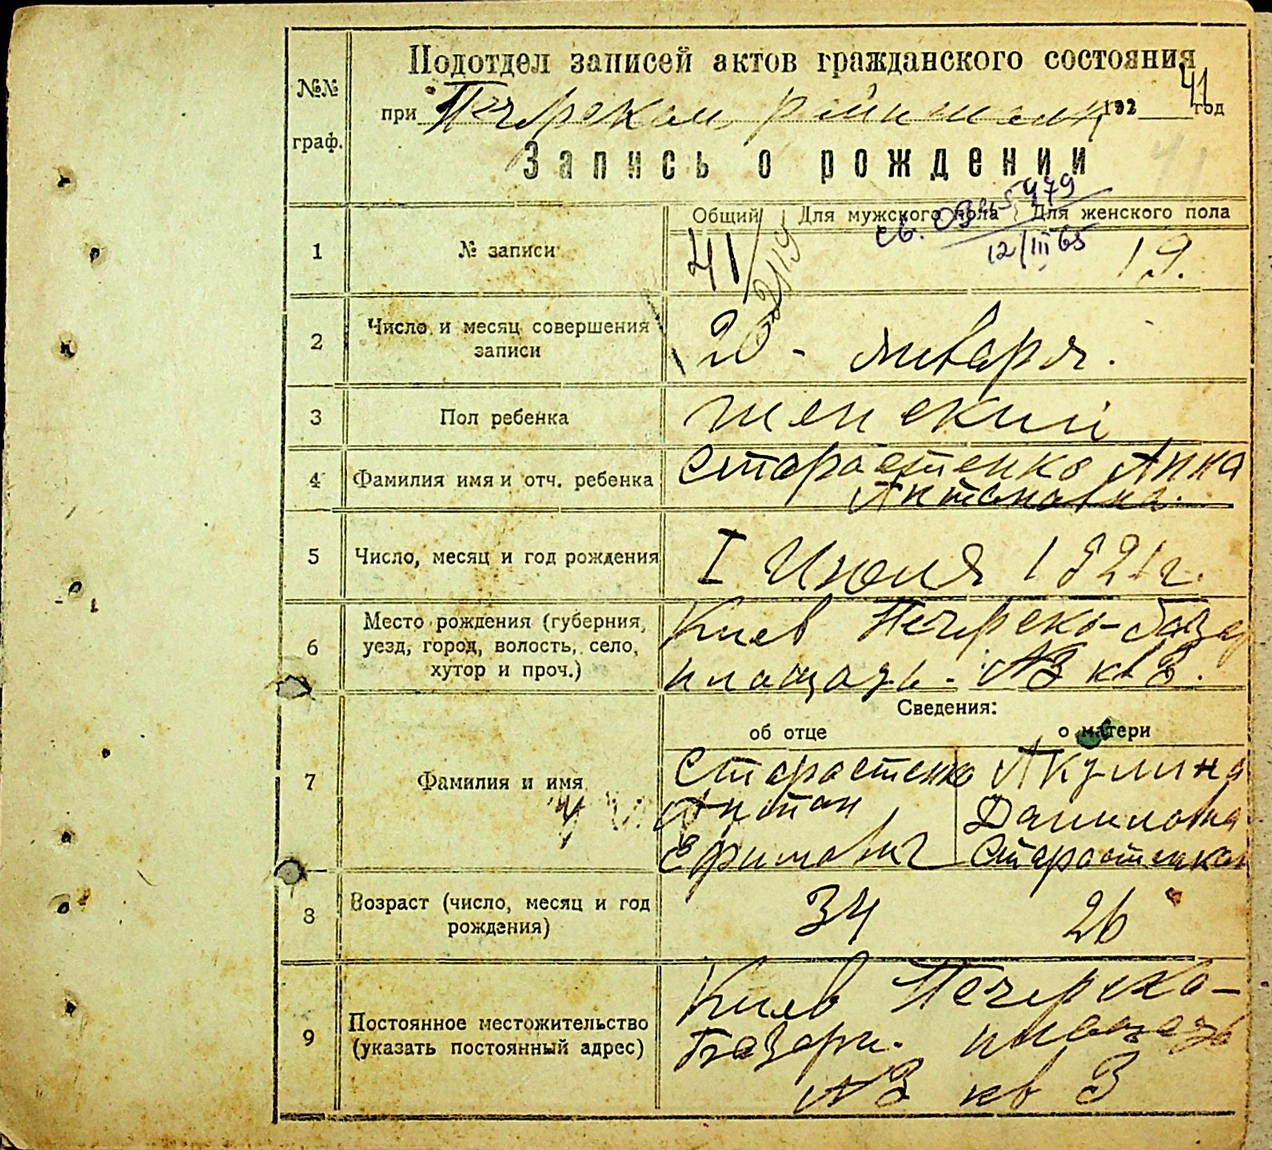 №№ граф.
Подотдел записей актов гражданского состояния
при Печерском 192 41 год
Запись о рождении
Общий Для мужского пола Для женского пола
св. 5479
12/III 65
1 № записи 41 19.
2 Число и месяц совершения
записи
20 - января.
3 Пол ребенка женский
4 Фамилия имя и отч. ребенка Старостенко Анна
Антоновна.
5 Число, месяц и год рождения I Июля 1921 г.
6 Место рождения (губерния,
уезд, город, волость, село,
хутор и проч.)
Киев Печерско-база
площадь. № 3 кв 3.
Сведения:
об отце о матери
7 Фамилия и имя
Старостенко
Антон
Ефимович
Акулина
Даниловна
Старостенко
8 Возраст (число, месяц и год
рождения)
34 26
9 Постоянное местожительство
(указать постоянный адрес)
Киев Печерско-
Базарн. площадь
№ 3 кв 3